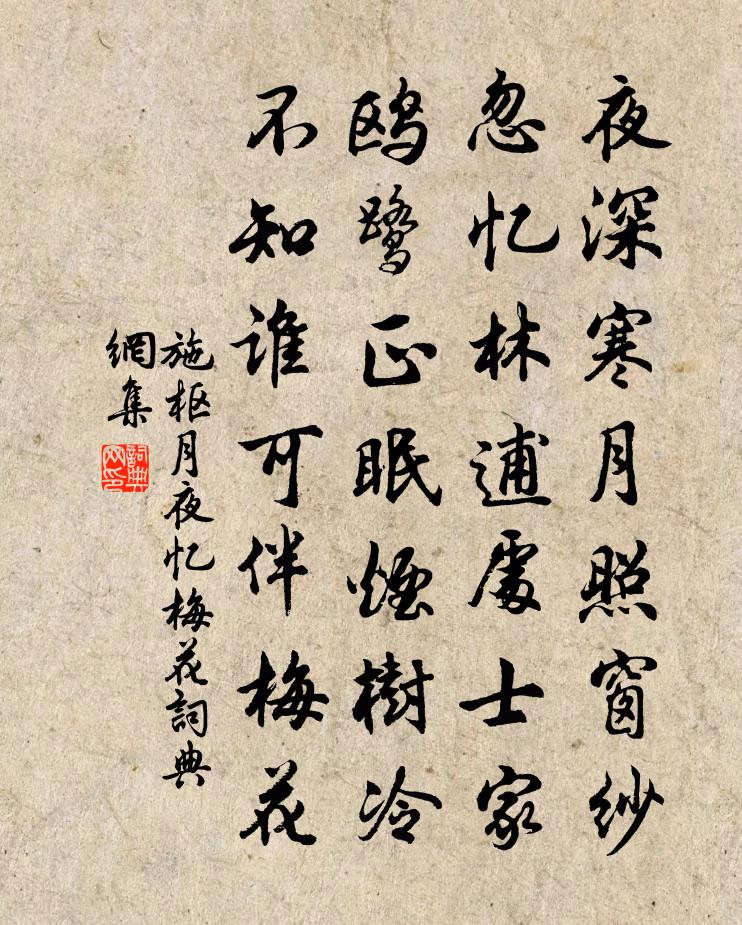 夜深寒月照窗紗
忽忆林逋處士家
鸥鹭正眠煙樹冷
不知谁可伴梅花
施枢月夜忆梅花詞典
網集
詞典网印